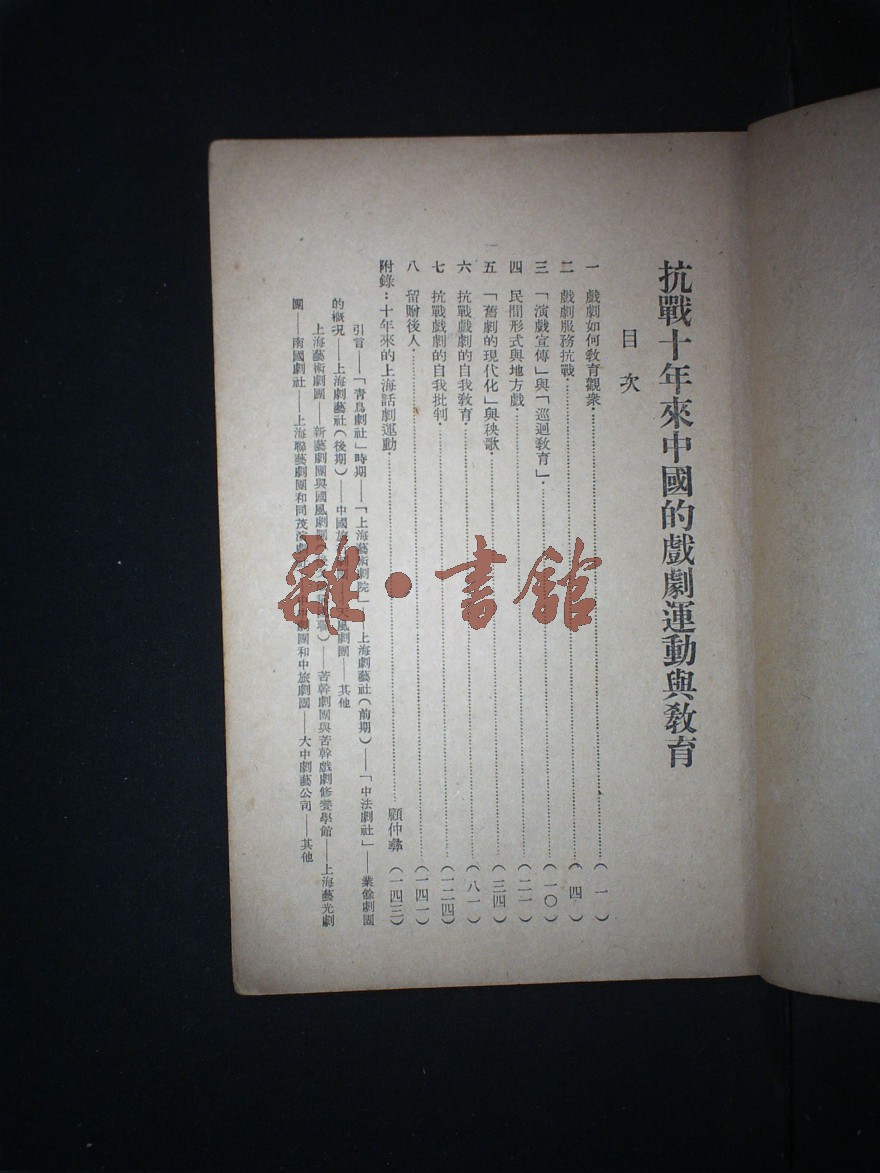 抗戰十年來中國的戲劇運動與教育
目次
一 戲劇如何教育觀衆（一）
二 戲劇服務抗戰（四）
三 「演戲宣傳」與「巡迴教育」（一〇）
四 民間形式與地方戲（二一）
五 「舊劇的現代化」與秧歌（三四）
六 抗戰戲劇的自我教育（八一）
七 抗戰戲劇的自我批判（一二四）
八 留贈後人（一四一）
附錄：十年來的上海話劇運動 顧仲彝（一四三）
引言——「靑鳥劇社」時期——「上海藝術劇院」——上海劇藝社（前期）——「中法劇社」——業餘劇團
的槪況——上海劇藝社（後期）——中國旅 風劇團——其他
上海藝術劇團——新藝劇團與國風劇團 ——苦幹劇團與苦幹戲劇修養學館——上海藝光劇
團——南國劇社——上海聯藝劇團和同茂演劇 劇團和中旅劇團——大中劇藝公司——其他
雜·書館